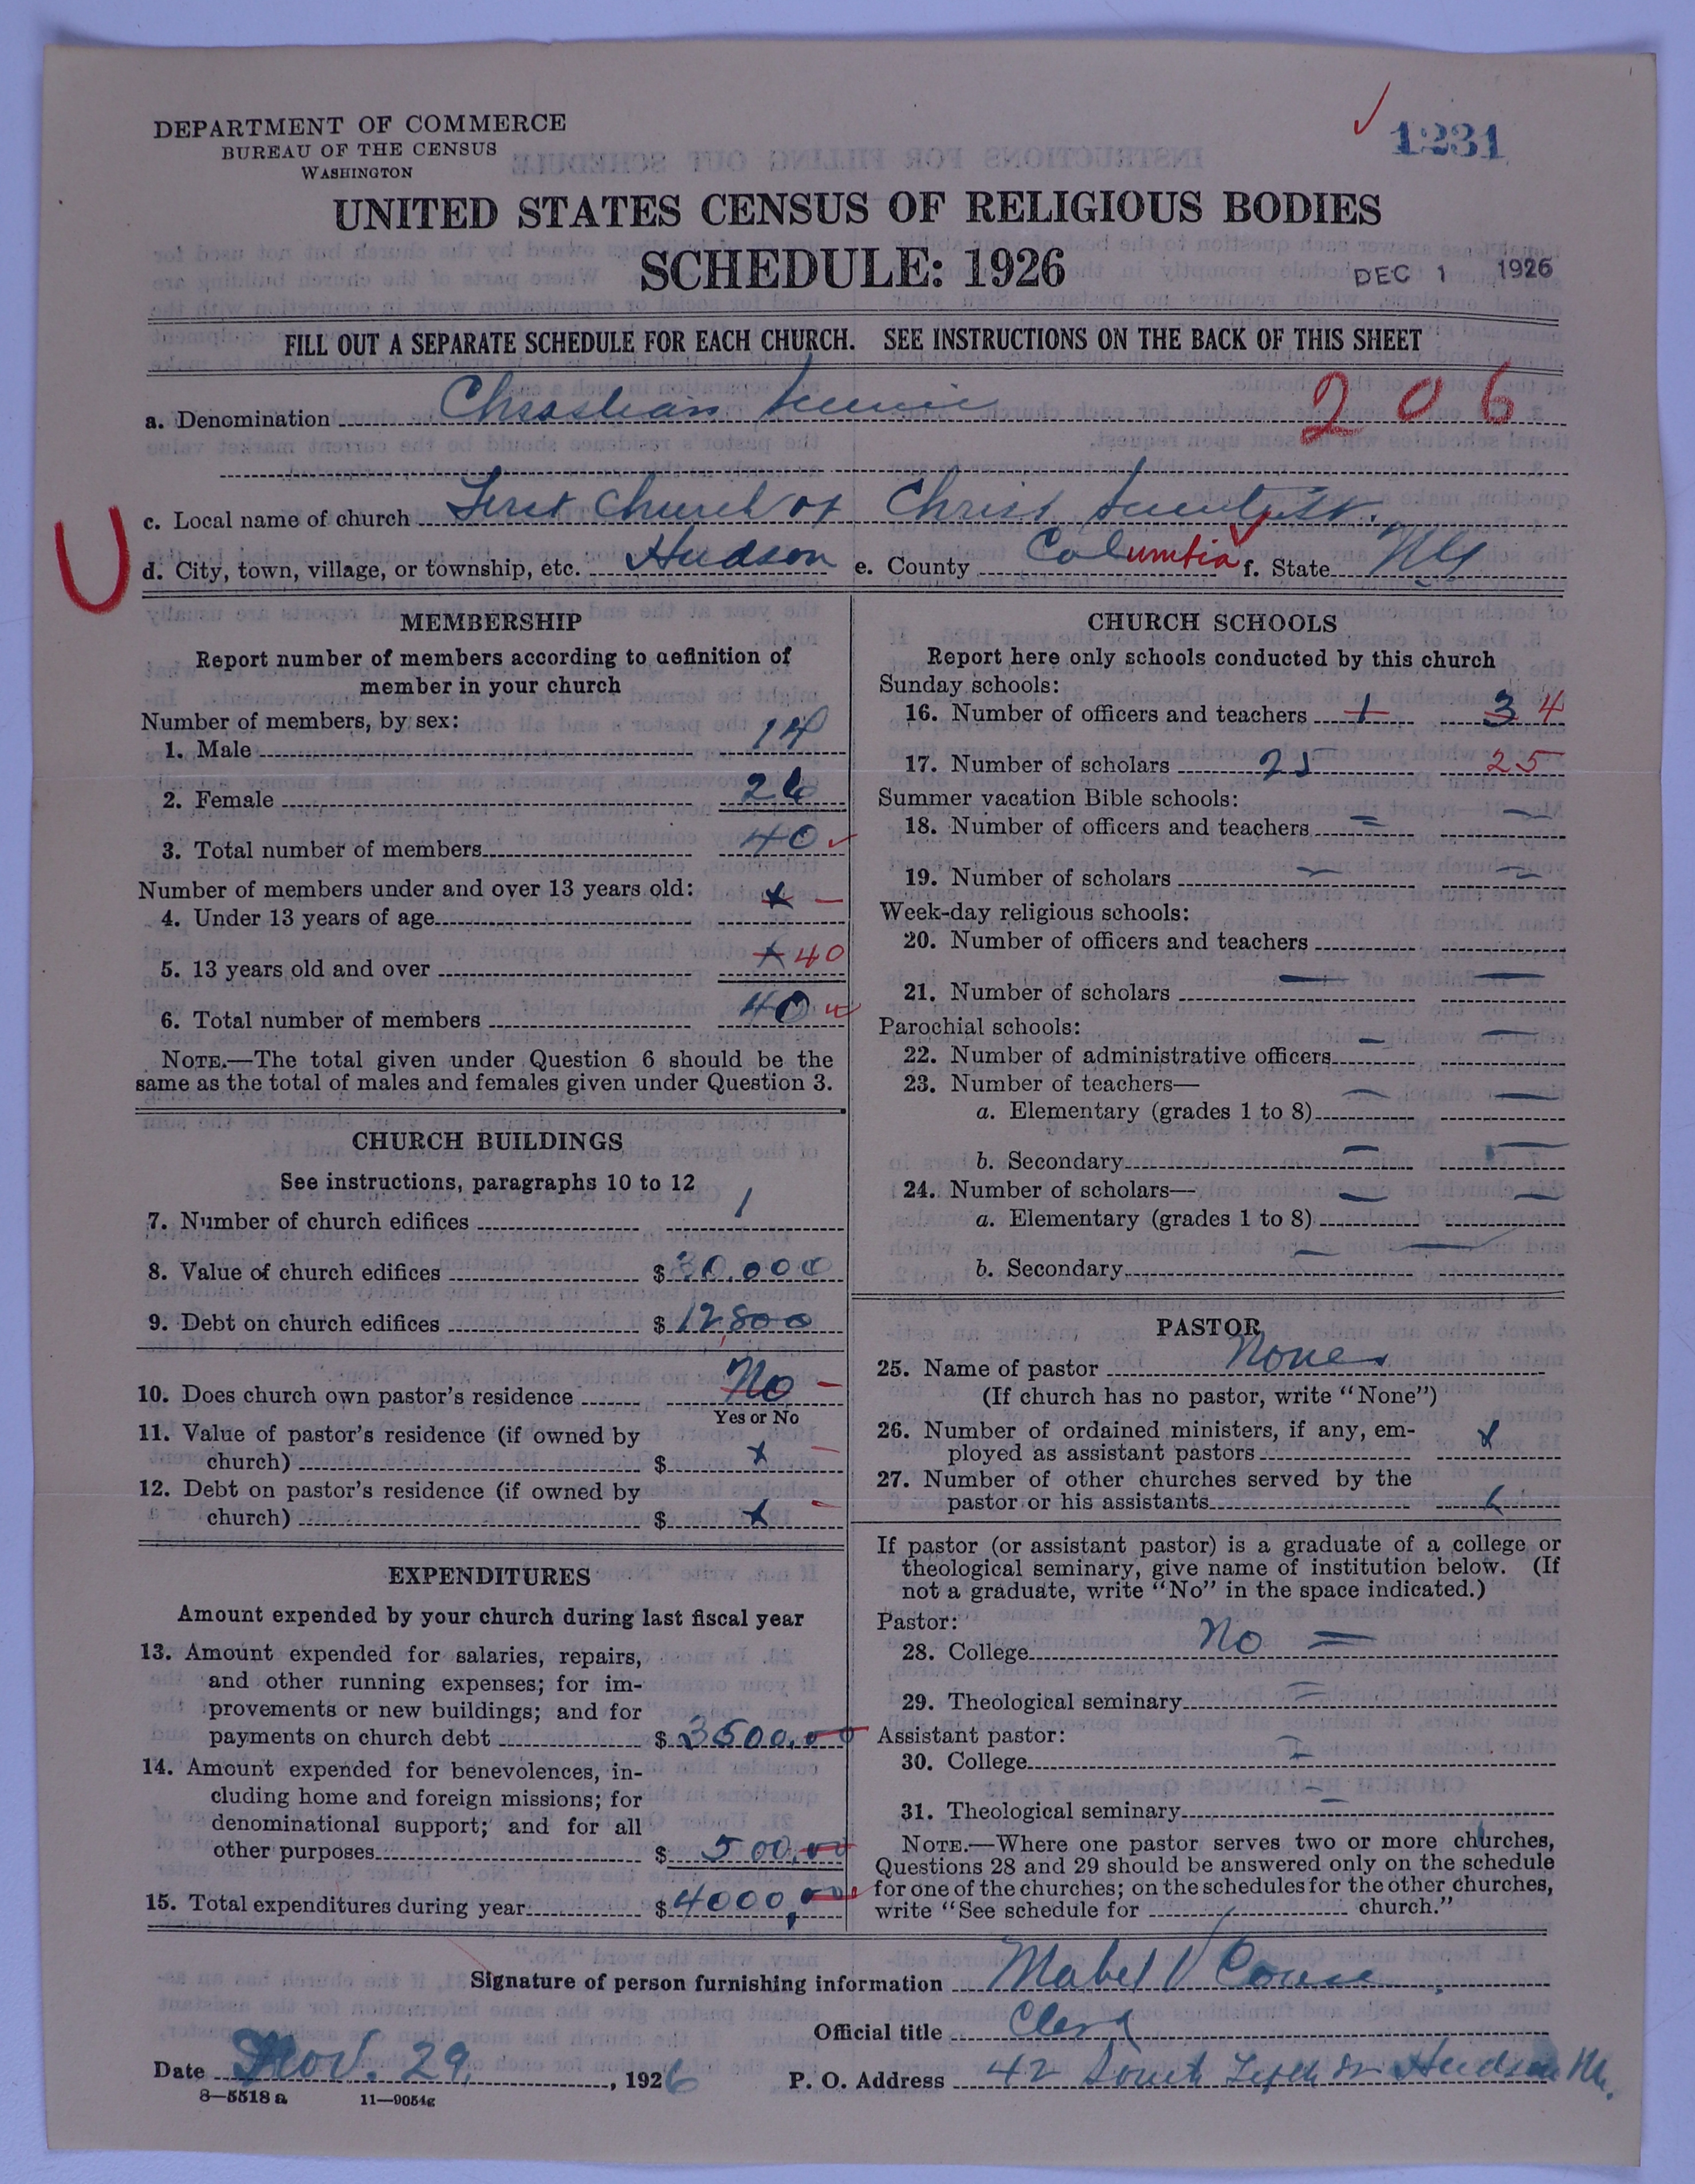 DEPARTMENT OF COMMERCE
BUREAU OF THE CENSUS
WASHINGTON
1231
UNITED STATES CENSUS OF RELIGIOUS BODIES
SCHEDULE: 1926
DEC 1 1926
FILL OUT A SEPARATE SCHEDULE FOR EACH CHURCH. SEE INSTRUCTIONS ON THE BACK OF THIS SHEET
a. Denomination Christian Science
206
c. Local name of church First Church of Christ Scientist.
U
d. City, town, village, or township, etc. Hudson e. County Columbia f. State NY
MEMBERSHIP
Report number of members according to definition of
member in your church
Number of members, by sex:
1. Male 14
2. Female 26
3. Total number of members 40
Number of members under and over 13 years old:
4. Under 13 years of age x –
5. 13 years old and over x 40
6. Total number of members 40
NOTE.—The total given under Question 6 should be the
same as the total of males and females given under Question 3.
CHURCH BUILDINGS
See instructions, paragraphs 10 to 12
7. Number of church edifices 1
8. Value of church edifices $ 30,000
9. Debt on church edifices $ 12,800
10. Does church own pastor's residence No –
Yes or No
11. Value of pastor's residence (if owned by
church) $ x –
12. Debt on pastor's residence (if owned by
church) $ x –
EXPENDITURES
Amount expended by your church during last fiscal year
13. Amount expended for salaries, repairs,
and other running expenses; for im-
provements or new buildings; and for
payments on church debt $ 3500.00
14. Amount expended for benevolences, in-
cluding home and foreign missions; for
denominational support; and for all
other purposes $ 500.00
15. Total expenditures during year $ 4000,00
CHURCH SCHOOLS
Report here only schools conducted by this church
Sunday schools:
16. Number of officers and teachers 1 3 4
17. Number of scholars 25 25
Summer vacation Bible schools:
18. Number of officers and teachers
19. Number of scholars
Week-day religious schools:
20. Number of officers and teachers
21. Number of scholars
Parochial schools:
22. Number of administrative officers
23. Number of teachers—
a. Elementary (grades 1 to 8)
b. Secondary
24. Number of scholars—
a. Elementary (grades 1 to 8)
b. Secondary
PASTOR
25. Name of pastor None
(If church has no pastor, write "None")
26. Number of ordained ministers, if any, em-
ployed as assistant pastors x
27. Number of other churches served by the
pastor or his assistants
If pastor (or assistant pastor) is a graduate of a college or
theological seminary, give name of institution below. (If
not a graduate, write "No" in the space indicated.)
Pastor:
28. College No
29. Theological seminary
Assistant pastor:
30. College
31. Theological seminary
NOTE.—Where one pastor serves two or more churches,
Questions 28 and 29 should be answered only on the schedule
for one of the churches; on the schedules for the other churches,
write "See schedule for church."
Signature of person furnishing information Mabel V
Official title Clerk
Date Nov. 29, 1926 P. O. Address 42 South Hudson
8—5518 a 11—9054g